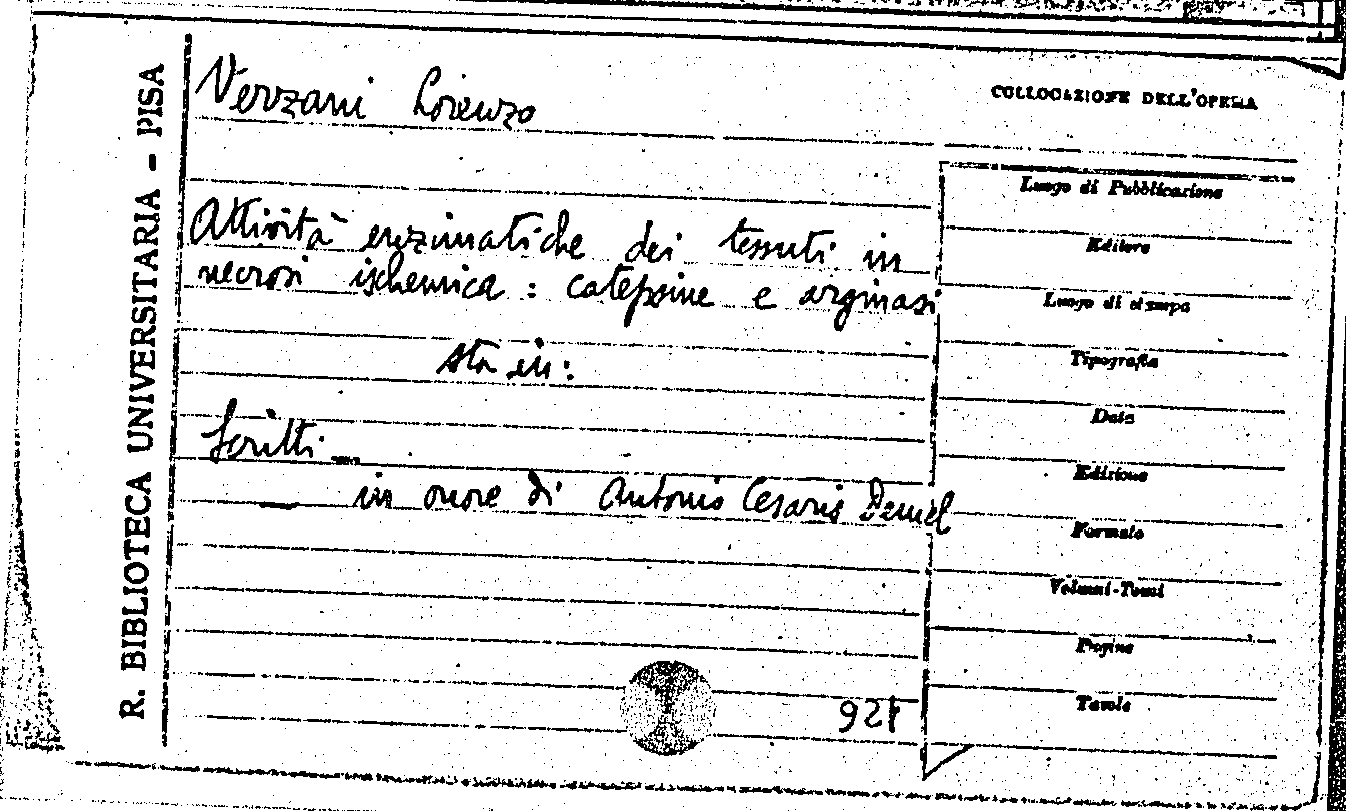 R. BIBLIOTECA UNIVERSITARIA - PISA
Verzani Lorenzo
COLLOCAZIONE DELL'OPERA
Luogo di Pubblicazione
Attività enzimatiche dei tessuti in
Editore
necrosi ischemica : catepsine e arginasi
Luogo di stampa
sta in:
Tipografia
Data
Scritti
Edizione
— in onore di Antonio Cesaris Demel
Formato
Volumi-Tomi
Pagine
Tavole
921